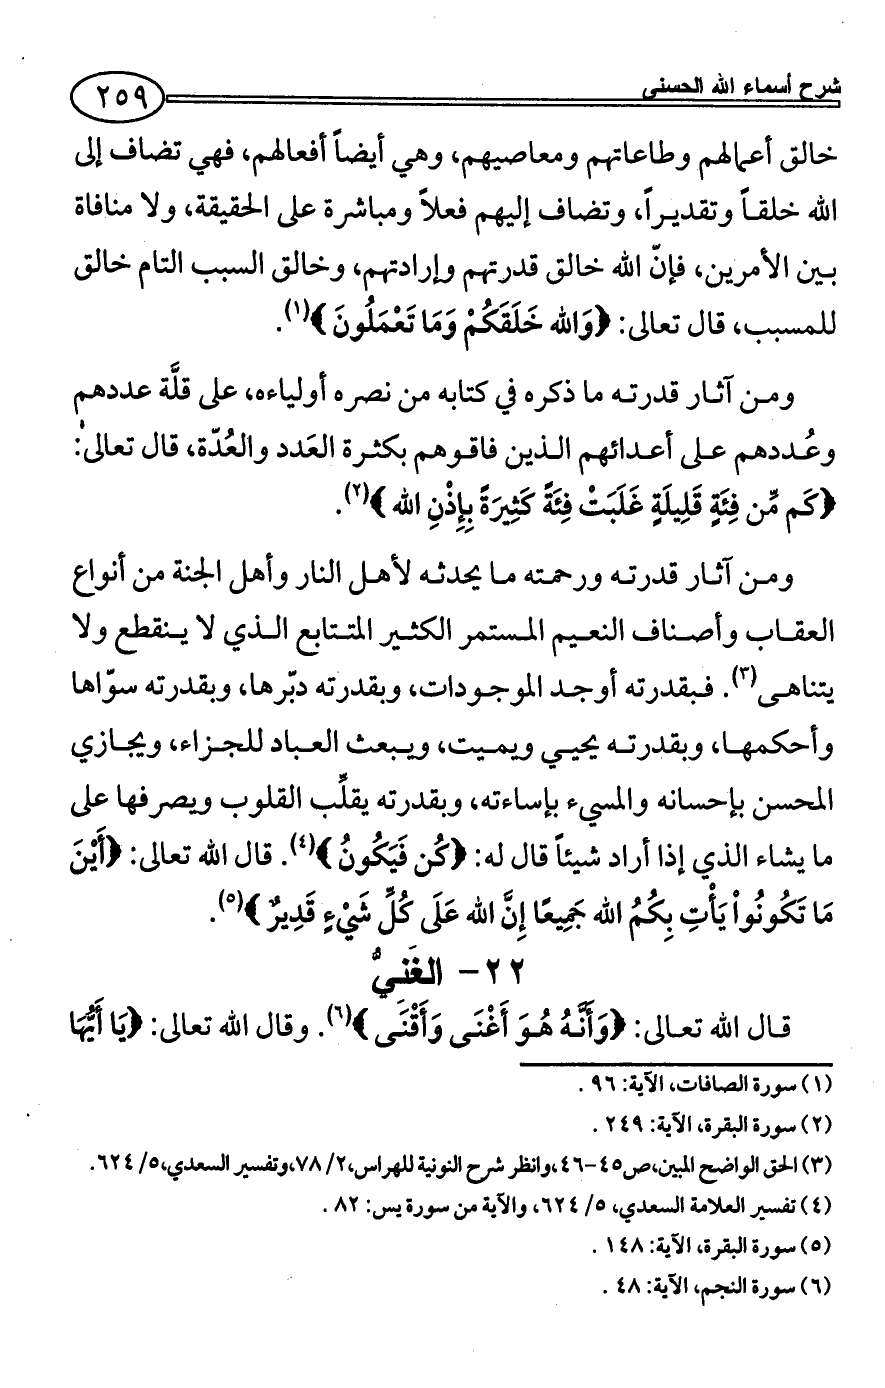 شرح أسماء الله الحسنى
٢٥٩
خالق أعمالهم وطاعاتهم ومعاصيهم، وهي أيضاً أفعالهم، فهي تضاف إلى
الله خلقـاً وتقديـراً، وتضاف إليهم فعلاً ومباشرة على الحقيقة، ولا منافاة
بـين الأمرين، فإنّ الله خالق قدرتهم وإرادتهم، وخالق السبب التام خالق
للمسبب، قال تعالى: ﴿وَالله خَلَقَكُمْ وَمَا تَعْمَلُونَ﴾(١).
ومـن آثـار قدرتـه ما ذكره في كتابه من نصره أولياءه، على قلَّة عددهم
وعُـددهم عـلى أعـدائهم الـذين فاقـوهم بكثـرة العَدد والعُدّة، قال تعالى:
﴿كَم مِّن فِئَةٍ قَلِيلَةٍ غَلَبَتْ فِئَةً كَثِيرَةً بِإِذْنِ الله﴾(٢).
ومـن آثـار قدرتـه ورحمتـه مـا يحدثـه لأهـل النار وأهل الجنة من أنواع
العقـاب وأصـناف النعيـم المـستمر الكثـير المتـتابع الـذي لا يـنقطع ولا
يتناهـى(٣). فـبقدرته أوجـد الموجـودات، وبقدرته دبّرها، وبقدرته سوّاها
وأحكمهـا، وبقدرتـه يحيـي ويمـيت، ويـبعث العـباد للجـزاء، ويجـازي
المحسن بإحسانه والمسيء بإساءته، وبقدرته يقلِّب القلوب ويصرفها على
ما يشاء الذي إذا أراد شيئاً قال له: ﴿كُن فَيَكُونُ﴾(٤). قال الله تعالى: ﴿أَيْنَ
مَا تَكُونُواْ يَأْتِ بِكُمُ الله جَمِيعًا إِنَّ الله عَلَى كُلِّ شَيْءٍ قَدِيرٌ﴾(٥).
٢٢- الغَنيُّ
قـال الله تعـالى: ﴿وَأَنَّـهُ هُـوَ أَغْنَـى وَأَقْنَـى﴾(٦). وقال الله تعالى: ﴿يَا أَيُّهَا
(١) سورة الصافات، الآية: ٩٦ .
(٢) سورة البقرة، الآية: ٢٤٩ .
(٣) الحق الواضح المبين،ص٤٥-٤٦،وانظر شرح النونية للهراس،٢/ ٧٨،وتفسير السعدي،٥/ ٦٢٤.
(٤) تفسير العلامة السعدي، ٥/ ٦٢٤، والآية من سورة يس: ٨٢ .
(٥) سورة البقرة، الآية: ١٤٨ .
(٦) سورة النجم، الآية: ٤٨ .